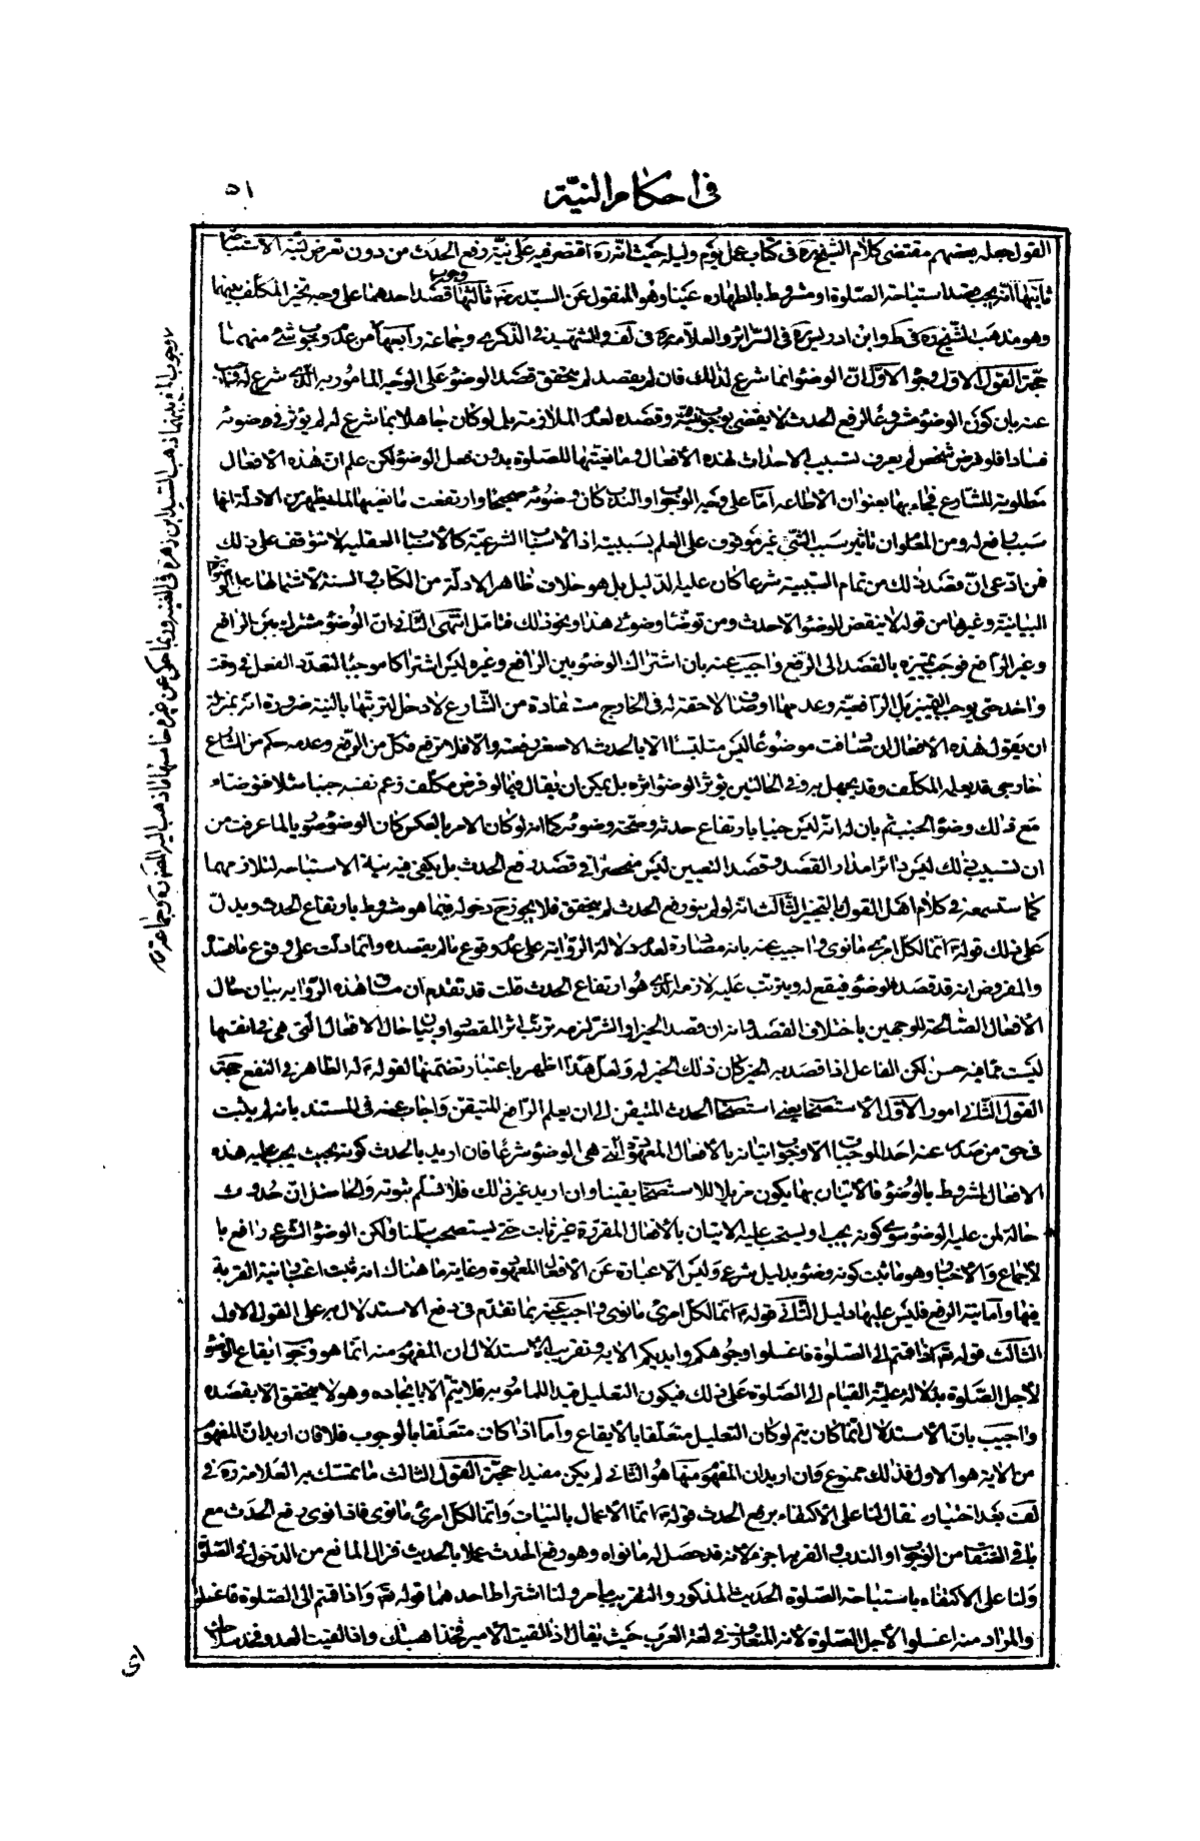 في احكام النية
٥١
القول جعله بعضهم مقتضى كلام الشيخ ره في كتاب عمل يوم وليلة حيث انه ره اقتصر فيه على نية رفع الحدث من دون تعرض لنية الاستباحة
ثانيها انه يجب قصد استباحة الصلوة او مشروط بالطهارة عينا وهو المنقول عن السيد ره ثالثها وجوب قصد احدهما على وجه تخير المكلف بينهما
وهو مذهب الشيخ ره في ط وابن ادريس ره في السرائر والعلامة ره في لف والشهيد في الذكرى وجماعة رابعها عدم وجوب شئ منهما
حجة القول الاول وجوه الاول ان الوضوء انما شرع لذلك فان لم يقصد لم يتحقق قصد الوضوء على الوجه المامور به الذي شرع له
عنه بان كون الوضوء مشروعا لرفع الحدث لا يقضى بوجوب نيته وقصده لعدم الملازمة بل لو كان جاهلا بما شرع له لم يؤثر في وضوئه
فسادا فلو فرض شخص لم يعرف تسبيب الاحداث لهذه الافعال ومانعيتها للصلوة بدون فعل الوضوء لكن علم ان هذه الافعال
مطلوبة للشارع فجاء بها بعنوان الاطاعة اما على وجه الوجوب او الندب كان وضوئه صحيحا وارتفعت مانعيتها لما يظهر من الادلة انها
سبب رافع له ومن المعلوم ان تاثير سبب الشئ غير موقوف على العلم بسببيته اذ الاسباب الشرعية كالاسباب العقلية لا تتوقف على ذلك
فمن ادعى ان قصد ذلك من تمام السببية شرعا كان عليه الدليل بل هو خلاف ظاهر الادلة من الكتاب والسنة لاشتمالها على الوضوءات
البيانية وغيرها من قوله لا ينقض الوضوء الا حدث ومن توضأ وضوئي هذا ونحو ذلك فتامل انتهى الثاني ان الوضوء مشترك بين الرافع
وغير الرافع فوجب تميزه بالقصد الى الرفع واجيب عنه بان اشتراك الوضوء بين الرافع وغيره ليس اشتراكا موجبا لتعدد الفعل في وقت
واحد حتى يوجب التمييز بل الرافعية وعدمها اوصاف لاحقة له في الخارج مستفادة من الشارع لا دخل لترتبها بالنية ضرورة انه بمنزلة
ان يقول هذه الافعال ان صادفت موضوعا ليس متلبسا الا بالحدث الاصغر رفعته والا فلا ترفع فكل من الرفع وعدمه حكم من الشارع
خارجي قد يعلمه المكلف وقد يجهل به وفي الحالتين يؤثر الوضوء اثره بل يمكن ان يقال فيما لو فرض مكلف زعم نفسه جنبا مثلا فتوضاء
مع ذلك وضوء الجنب ثم بان له انه ليس جنبا بارتفاع حدثه وصحة وضوئه كما انه لو كان الامر بالعكس كان الوضوء صوريا لما عرفت من
ان تسبيب ذلك ليس دائرا مدار القصد وقصد التعيين ليس منحصرا في قصد رفع الحدث بل يكفي فيه نية الاستباحة لتلازمهما
كما ستسمعه في كلام اهل القول بالتخيير الثالث انه لو لم ينو رفع الحدث لم يتحقق فلا يجوز ح دخوله فيما هو مشروط بارتفاع الحدث ويدل
على ذلك قوله ع انما لكل امرئ ما نوى واجيب عنه بانه مصادرة لعدم دلالة الرواية على عدم وقوع ما لم يقصده وانما دلت على وقوع ما قصد
والمفروض انه قد قصد الوضوء فيقع له ويترتب عليه لازمه الذي هو ارتفاع الحدث قلت قد تقدم ان مساق هذه الرواية بيان حال
الافعال الصالحة للوجهين باختلاف القصد وانه ان قصد الخير او الشر لزمه ترتب اثر المقصود او بيان حال الافعال التي هي في انفسها
ليست مما فيه حسن لكن الفاعل اذا قصد به الخير كان ذلك الخير له ولعل هذا اظهر باعتبار تضمنها لقوله ع له الظاهر في النفع حجة
القول الثاني امور الاول الاستصحاب يعني استصحاب الحدث المتيقن الى ان يعلم الرافع المتيقن واجاب عنه في المستند بانه لم يثبت
في حق من صدر عنه احد الموجبات الا وجوب اتيانه بالافعال المعهودة التي هي الوضوء شرعا فان اريد بالحدث كونه بحيث يجب عليه هذه
الافعال لمشروط بالوضوء فالاتيان بها يكون مزيلا للاستصحاب يقينا وان اريد غير ذلك فلا نسلم ثبوته والحاصل ان حدوث
حالة لمن عليه الوضوء سوى كونه يجب او يستحب عليه الاتيان بالافعال المقررة غير ثابت حتى يستصحب سلمنا ولكن الوضوء الشرعي رافع با
لاجماع والاخبار وهو ما ثبت كونه وضوء بدليل شرعي وليس الا عبارة عن الافعال المعهودة وغاية ما هناك انه ثبت اعتبار نية القربة
فيها واما نية الرفع فليس عليها دليل الثاني قوله ع انما لكل امرئ ما نوى واجيب عنه بما تقدم في دفع الاستدلال به على القول الاول
الثالث قوله تع اذا قمتم الى الصلوة فاغسلوا وجوهكم وايديكم الاية وتقريب الاستدلال ان المفهوم منه انما هو وجوب ايقاع الوضوء
لاجل الصلوة بدلالة علية القيام الى الصلوة على ذلك فيكون التعليل قيد المامور به فلا يتم الا بايجاده وهو لا يتحقق الا بقصده
واجيب بان الاستدلال انما كان يتم لو كان التعليل متعلقا بالايقاع واما اذا كان متعلقا بالوجوب فلا فان اريد ان المفهوم
من الاية هو الاول فذلك ممنوع وان اريد ان المفهوم منها هو الثاني لم يكن مفيدا حجة القول الثالث ما تمسك به العلامة ره في
لف بعد اختياره فقال لنا على الاكتفاء برفع الحدث قوله ع انما الاعمال بالنيات وانما لكل امرئ ما نوى فاذا نوى رفع الحدث مع
باقي الصفات من الوجوب او الندب والقربة اجزءه لانه قد حصل له ما نواه وهو رفع الحدث عملا بالحديث فزال المانع من الدخول في الصلوة
ولنا على الاكتفاء باستباحة الصلوة الحديث المذكور والتقريب ما مر ولنا اشتراط احدهما قوله تع واذا قمتم الى الصلوة فاغسلوا
والمراد منه اغسلوا لاجل الصلوة لانه المتعارف في لغة العرب حيث يقال اذا لقيت الامير فخذ اهبتك واذا لقيت العدو فخذ سلاحك
اي
وجوب الجمع بينهما ذهب السيد ابن زهرة في الغنية وربما حكى عن غيره خامسها ذهب اليه المص ره وجماعة